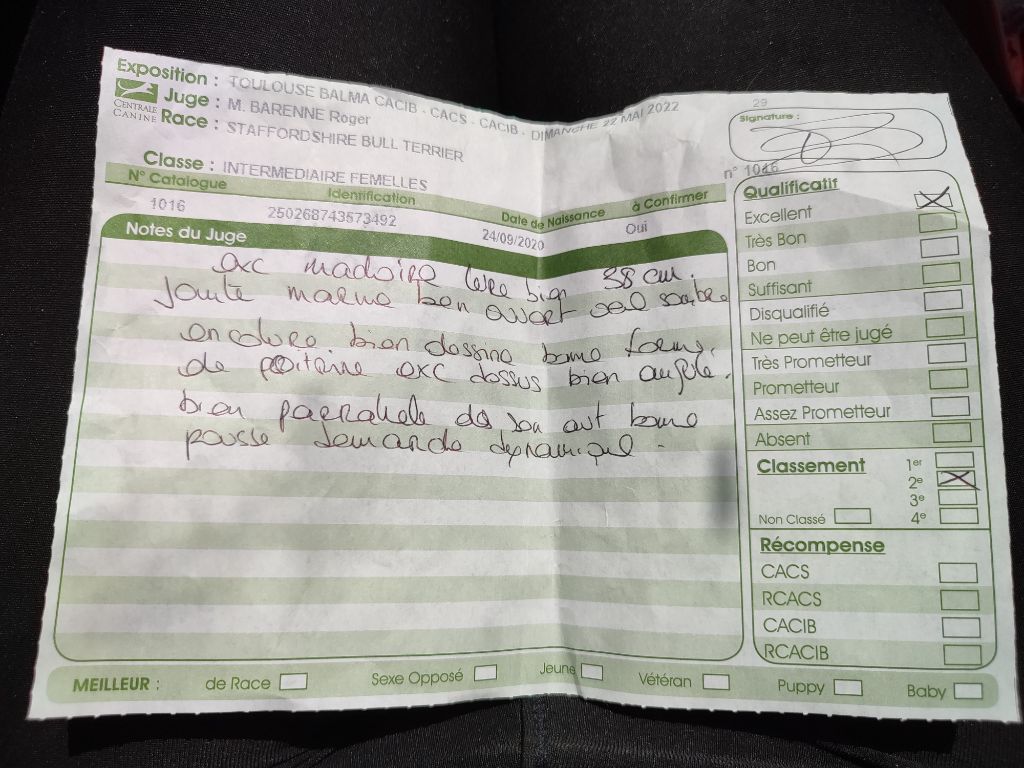 Exposition : TOULOUSE BALMA CACIB - CACS - CACIB - DIMANCHE 22 MAI 2022
29
CENTRALE CANINE
Juge : M. BARENNE Roger
Race : STAFFORDSHIRE BULL TERRIER
Classe : INTERMEDIAIRE FEMELLES
Signature :
n° 1016
N° Catalogue Identification Date de Naissance à Confirmer
1016 250268743573492 24/09/2020 Oui
Notes du Juge
exc machoire tete bien 38 cm.
bien
encolure bien dessine bonne forme.
de poitrine exc dessus bien angule.
bien de son bonne
pousse demande dynamique.
Qualificatif
Excellent
Très Bon
Bon
Suffisant
Disqualifié
Ne peut être jugé
Très Prometteur
Prometteur
Assez Prometteur
Absent
Classement
1er
2e
3e
Non Classé 4e
Récompense
CACS
RCACS
CACIB
RCACIB
MEILLEUR : de Race Sexe Opposé Jeune Vétéran Puppy Baby